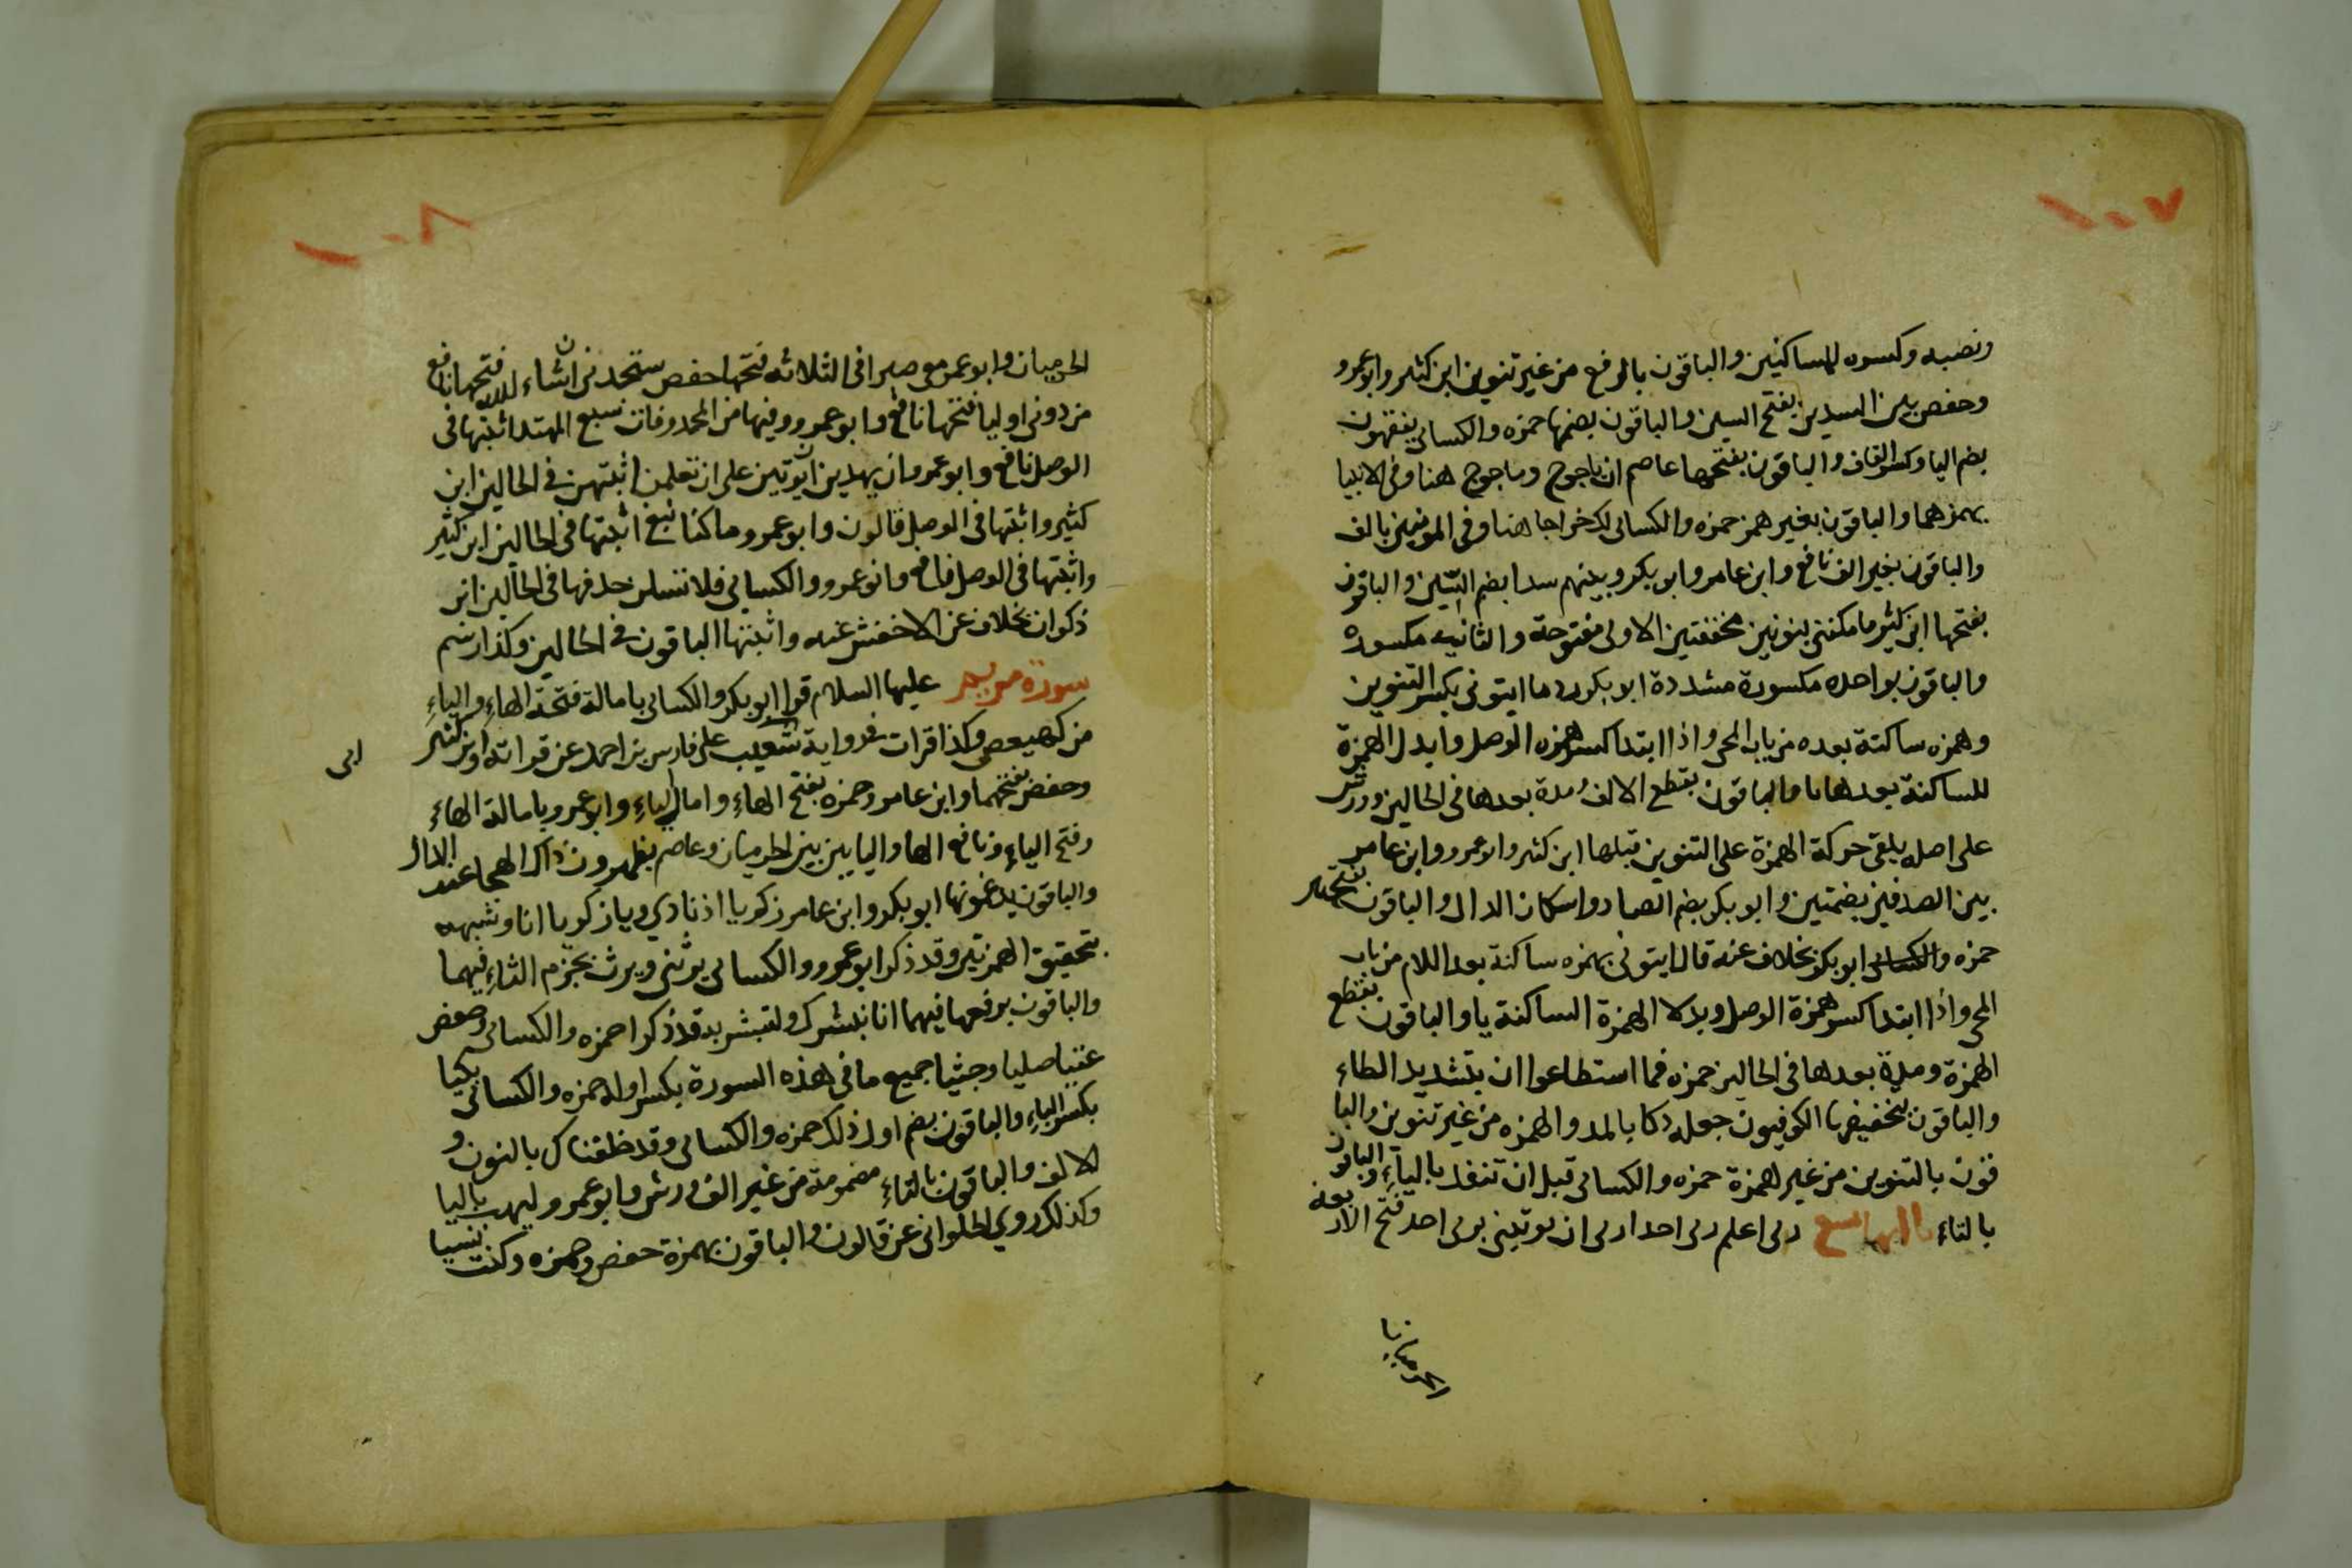 ١٠٧
ونصبه وكسره للساكنين والباقون بالرفع من غير تنوين ابن كثير وابو عمرو
وحفص بين السدين بفتح السين والباقون بضمها حمزه والكسائى يفقهون
بضم اليا وكسر القاف والباقون بفتحهما عاصم ان ياجوج وماجوج هنا وفى الانبيا
بهمزهما والباقون بغير همز حمزه والكسائى لك خراجا هنا وفى المومنين بالف
والباقون بغير الف نافع وابن عامر وابو بكر وبينهم سدا بضم السين والباقون
بفتحها ابن كثير ما مكننى بنونين مخففتين الاولى مفتوحة والثانيه مكسوره
والباقون بواحده مكسورة مشددة ابو بكر ردما ايتونى بكسر التنوين
وهمزه ساكنة بعده من باب المجى واذا ابتدا كسر همزه الوصل وابدل الهمزة
الساكنة بعدها يا والباقون بقطع الالف ومدة بعدها فى الحالين وورش
على اصله يلقى حركة الهمزة على التنوين قبلها ابن كثير وابو عمرو وابن عامر
بين الصدفين بضمتين وابو بكر بضم الصاد واسكان الدال والباقون بفتحتين
حمزه وابو بكر بخلاف عنه قال ايتونى بهمزه ساكنة بعد اللام من باب
المجى واذا ابتدا كسر همزة الوصل وبدلا الهمزة الساكنة يا والباقون بقطع
الهمزة ومدة بعدها فى الحالين حمزه فما استطاعوا ان بتشديد الطاء
والباقون بتخفيفها الكوفيون جعله دكا بالمد والهمزه من غير تنوين والبا
قون بالتنوين من غير همزة حمزه والكسائى قبل ان تنفد بالياء والباقون
بالتاء ربى اعلم ربى احدا ربى ان يوتينى بربى احد فتح الاربعة
الحرميان
١٠٨
الحرميان وابو عمرو معى صبرا فى الثلاثه فتحها حفص ستجدنى ان شاء الله فتحها نافع
من دونى اوليا فتحها نافع وابو عمرو وفيها من المحذوفات سبع المهتد اثبتها فى
الوصل نافع وابو عمرو ان يهدين ان يوتين على ان تعلمن اثبتهن فى الحالين ابن
كثير واثبتها فى الوصل قالون وابو عمرو وما كنا نبغ اثبتها فى الحالين ابن كثير
واثبتها فى الوصل نافع وابو عمرو والكسائى فلا تسئلن حذفها فى الحالين ابن
ذكوان بخلاف عن الاخفش عنه واثبتها الباقون فى الحالين وكذا رسم
سورة مريم عليها السلام قرا ابو بكر والكسائى بامالة فتحة الهاء والياء
من كهيعص وكذا قرات فى رواية شعيب على فارس بن احمد عن قراته وابن كثير
ابى
وحفص بفتحهما وابن عامر وحمزه بفتح الهاء وامال الياء وابو عمرو بامالة الهاء
وفتح الياء ونافع الها واليا بين بين الحرميان وعاصم يظهرون دال الهجا عند الذال
والباقون يدغمونها ابو بكر وابن عامر زكريا اذ نادى ويا زكريا انا وشبهه
بتحقيق الهمزتين وقد ذكر ابو عمرو والكسائى يرثنى ويرث بجزم الثاء فيهما
والباقون برفعها فيهما انا نبشرك ولتبشر به قد ذكرا حمزه والكسائى وحفص
عتيا صليا وجثيا جميع ما فى هذه السورة بكسر اوله حمزه والكسائى بكيا
بكسر الباء والباقون بضم اول ذلك حمزه والكسائى وقد خلقناك بالنون و
الالف والباقون بالتاء مضمومة من غير الف ورش وابو عمرو وليهب باليا
وكذلك روى الحلوانى عن قالون والباقون بهمزة حفص وحمزه وكنت نسيا